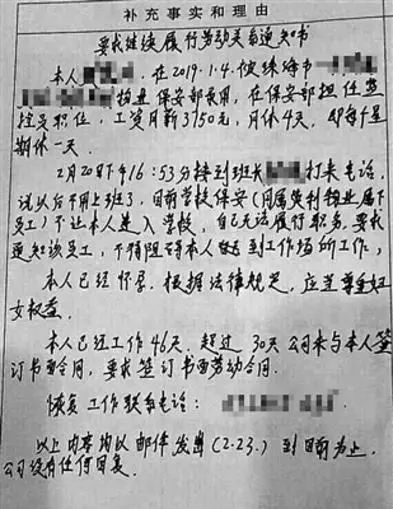 补充事实和理由
要求继续履行劳动关系通知书
本人 在2019.1.4.被珠海市
物业保安部录用，在保安部担任监
控员职位，工资月薪3750元，月休4天，即每个星
期休一天。
2月20日下午16：53分接到班长 打来电话，
说以后不用上班了，目前学校保安（同属 物业属下
员工）不让本人进入学校，自己无法履行职务，要求
通知该员工，不得阻碍本人 到工作场所工作，
本人已经怀孕，根据法律规定，应当尊重妇
女权益。
本人已经工作46天，超过30天公司未与本人签
订书面合同，要求签订书面劳动合同。
恢复工作联系电话：
以上内容均以邮件发出（2.23.）到目前为止，
公司没有任何回复。